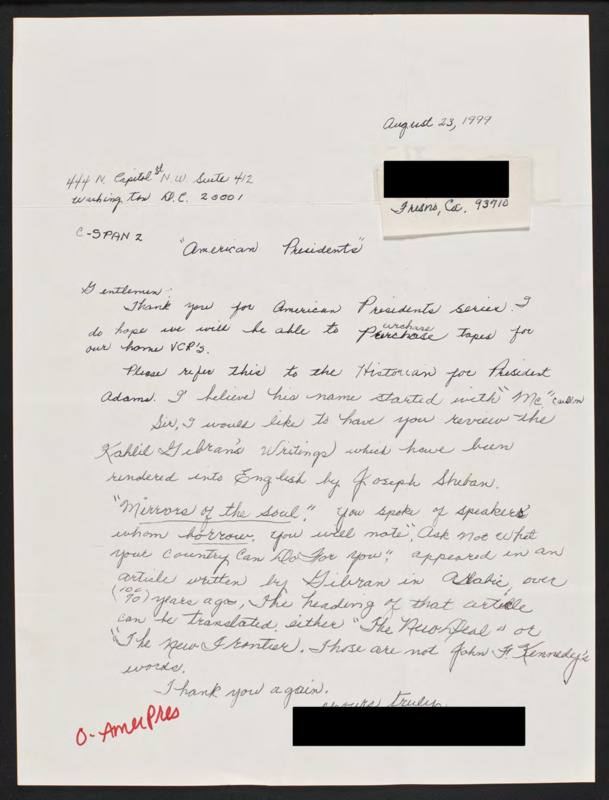 August 23, 1999
Fresno, Ca. 93710
444 N. Capitol St N.W. Suite 412
Washington D.C. 20001
C-SPAN 2
"American Presidents"
Gentlemen:
Thank you for American Presidents series. I
do hope we will be able to purchase tapes for
our home VCR's.
Please refer this to the Historian for President
Adams. I believe his name started with "Mc."
Sir, I would like to have you review the
Kahlil Gibran's Writings which have been
rendered into English by Joseph Sheban.
"Mirrors of the Soul." You spoke of speakers
whom borrow. You will note", Ask Not What
your Country Can Do For You", appeared in an
article written by Gibran in Arabic, over
70) years ago, The heading of that article
can be translated either "The New Deal" or
"The New Frontier). Those are not John F. Kennedy's
words.
Thank you again.
yours truly,
O-AmerPres